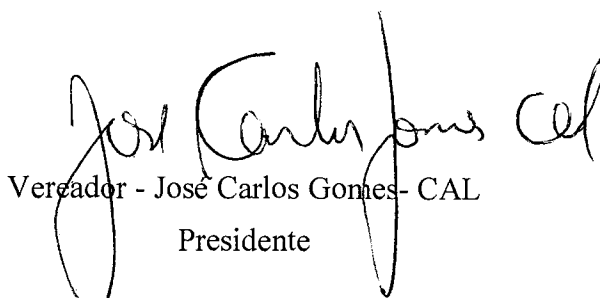 José Carlos Gomes Cal
Vereador - José Carlos Gomes- CAL
Presidente